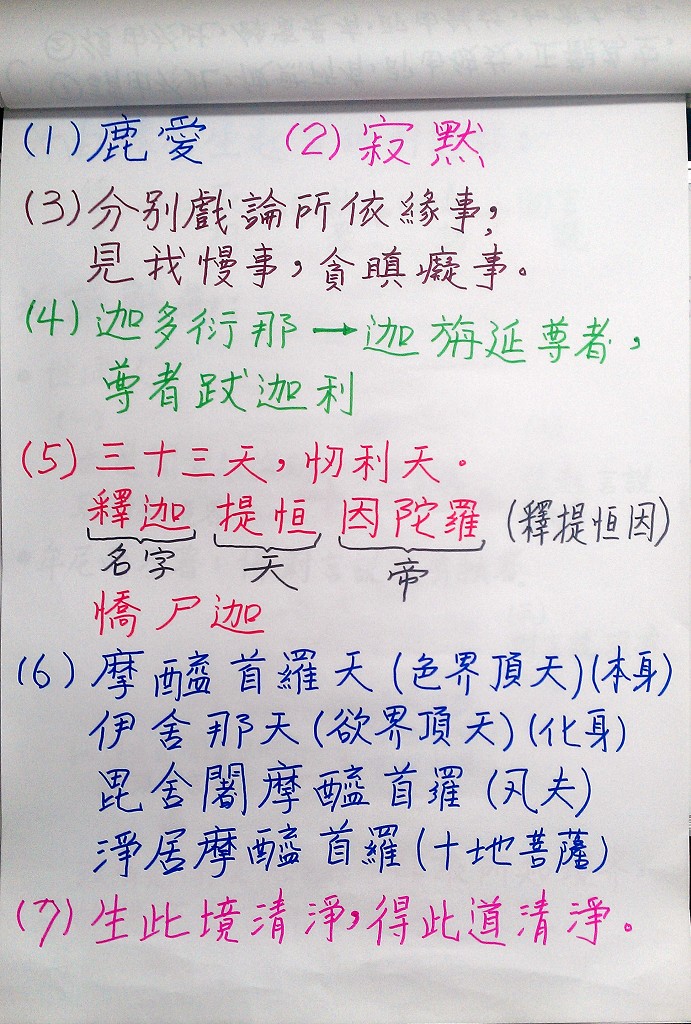 (1) 鹿愛 (2) 寂默
(3) 分別戲論所依緣事,
見我慢事,貪瞋癡事。
(4) 迦多衍那→迦旃延尊者,
尊者跋迦利
(5) 三十三天,忉利天。
釋迦 提恒 因陀羅 (釋提恒因)
名字 天 帝
憍尸迦
(6) 摩醯首羅天(色界頂天)(本身)
伊舍那天(欲界頂天)(化身)
毘舍闍摩醯首羅(凡夫)
淨居摩醯首羅(十地菩薩)
(7) 生此境清淨,得此道清淨。